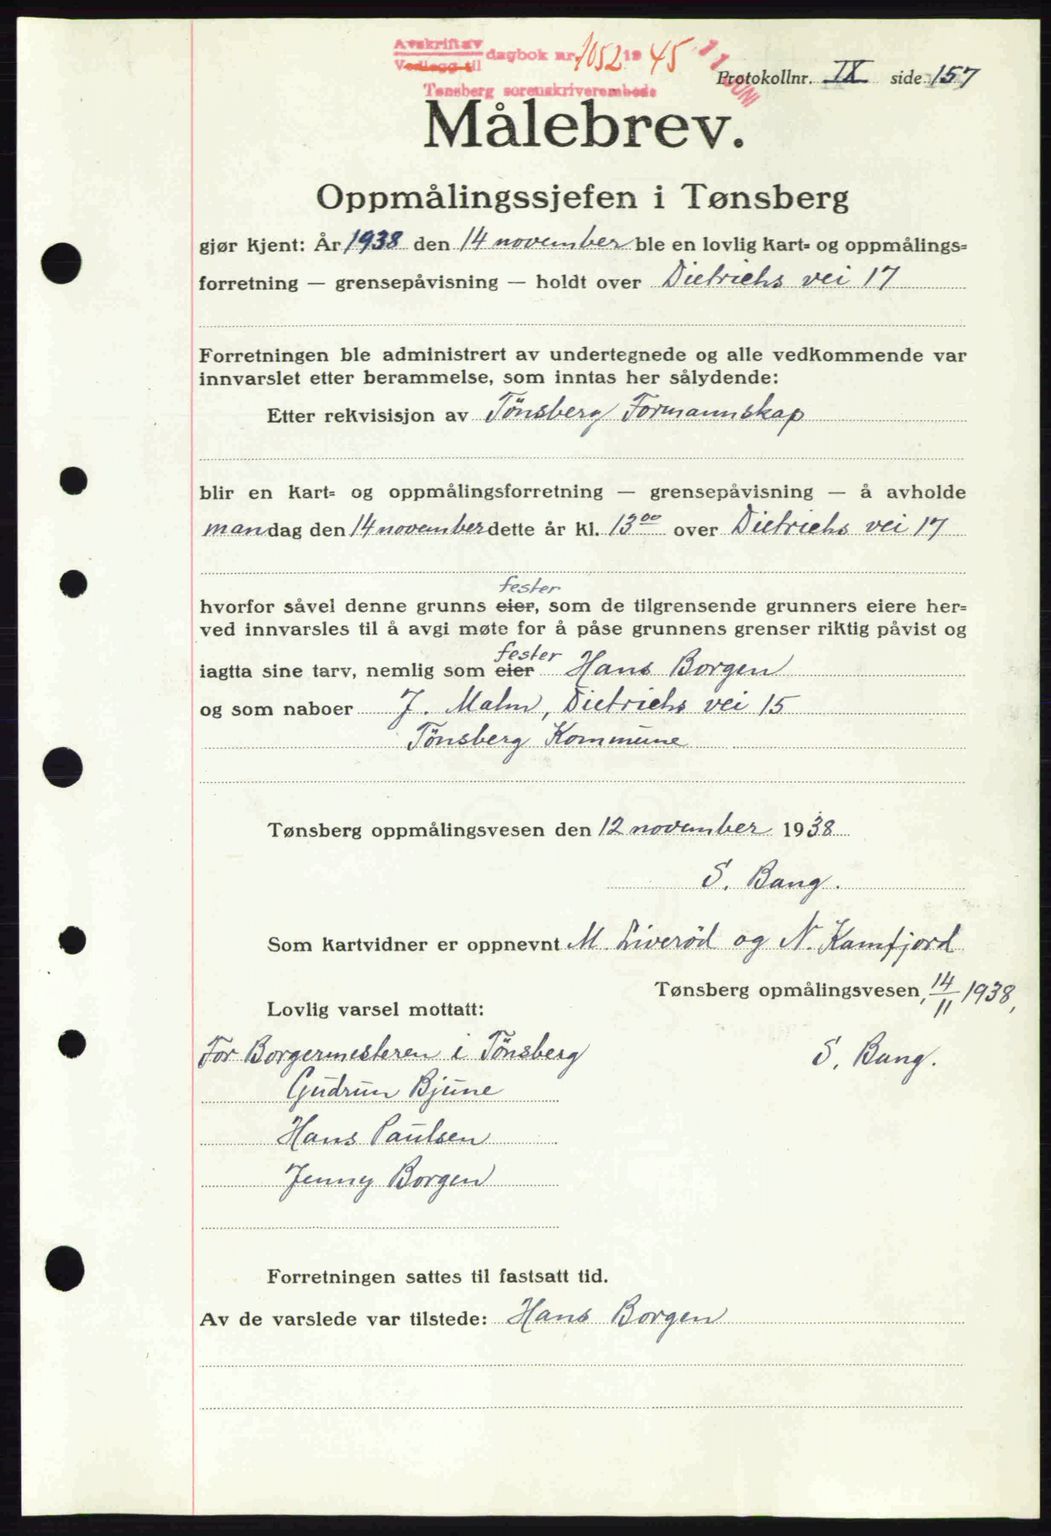 Avskrift av
Vedlegg til dagbok nr. 1052 1945 11 JUNI
Tønsberg sorenskriverembede
Protokollnr. IX side 157
Målebrev.
Oppmålingssjefen i Tønsberg
gjør kjent: År 1938 den 14 november ble en lovlig kart= og oppmålings=
forretning — grensepåvisning — holdt over Dietrichs vei 17
Forretningen ble administrert av undertegnede og alle vedkommende var
innvarslet etter berammelse, som inntas her sålydende:
Etter rekvisisjon av Tönsberg Formannskap
blir en kart= og oppmålingsforretning — grensepåvisning — å avholde
mandag den 14 november dette år kl. 13⁰⁰ over Dietrichs vei 17
fester
hvorfor såvel denne grunns eier, som de tilgrensende grunners eiere her=
ved innvarsles til å avgi møte for å påse grunnens grenser riktig påvist og
fester
iagtta sine tarv, nemlig som eier Hans Borgen
og som naboer J. Malm, Dietrichs vei 15
Tönsberg Kommune
Tønsberg oppmålingsvesen den 12 november 1938
S. Bang.
Som kartvidner er oppnevnt M. Liveröd og N. Kamfjord
Tønsberg opmålingsvesen, 14/11 1938,
Lovlig varsel mottatt:
For Borgermesteren i Tönsberg S. Bang.
Gudrun Bjune
Hans Paulsen
Jenny Borgen
Forretningen sattes til fastsatt tid.
Av de varslede var tilstede: Hans Borgen